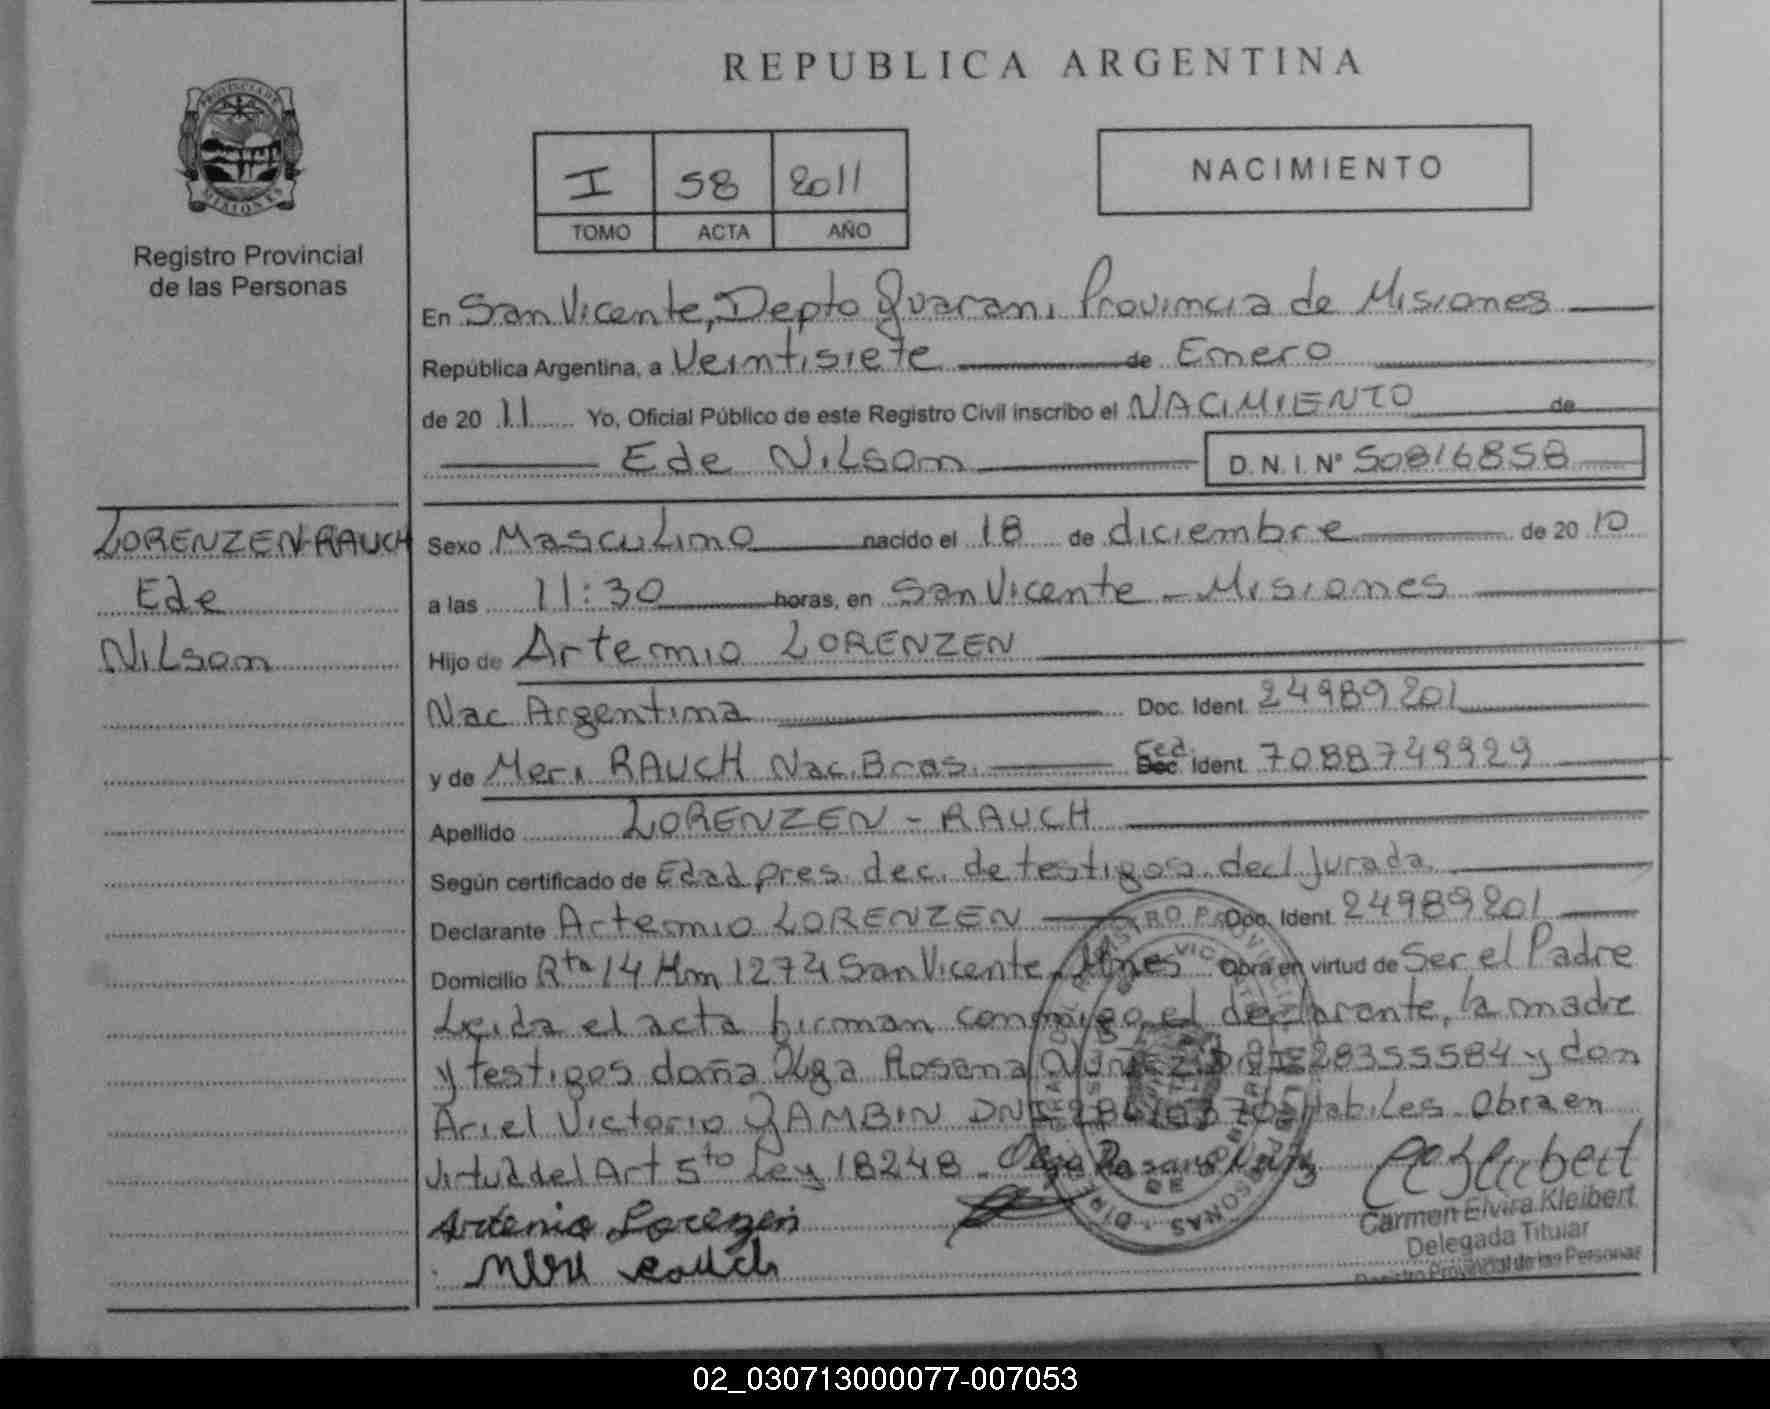 REPUBLICA ARGENTINA
PROVINCIA DE
MISIONES
Registro Provincial
de las Personas
I 58 2011
TOMO ACTA AÑO
NACIMIENTO
En San Vicente, Depto Guarani Provincia de Misiones
República Argentina, a Veintisiete de Enero
de 2011 Yo, Oficial Público de este Registro Civil inscribo el NACIMIENTO de
Ede Nilson D.N.I. Nº 50816858
LORENZEN-RAUCH
Ede
Nilson
Sexo Masculino nacido el 18 de diciembre de 2010
a las 11:30 horas, en San Vicente - Misiones
Hijo de Artemio LORENZEN
Nac Argentina Doc. Ident. 24989201
y de Meri RAUCH Nac. Bras. Ced. Doc Ident. 7088749929
Apellido LORENZEN - RAUCH
Según certificado de Edad pres. dec. de testigos decl Jurada
Declarante Artemio LORENZEN Doc. Ident. 24989201
Domicilio Rta 14 Km 1274 San Vicente, Mnes Obra en virtud de Ser el Padre
Leida el acta firman conmigo el declarante, la madre
y testigos doña Olga Rosana 28355584 y don
Ariel Victorio GAMBIN DNI Habiles. Obra en
virtud del Art 5to Ley 18248. Olga Rosana
Artemio Lorenzen
Meri Rauch
Carmen Elvira Kleibert
Delegada Titular
Registro Provincial de las Personas
02_030713000077-007053